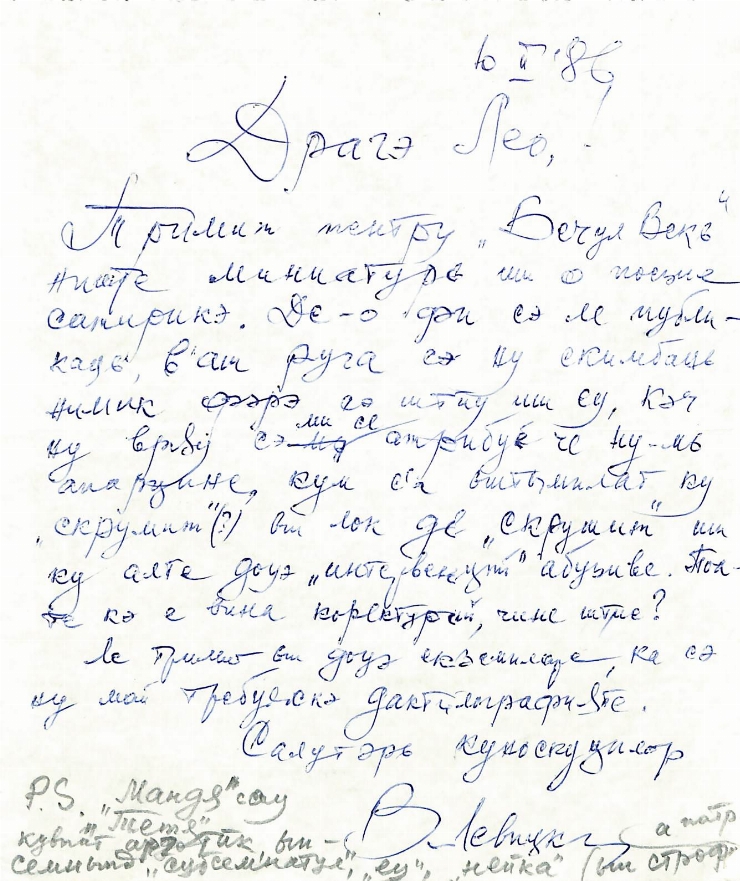 10 II '86
Драгэ Лео,!
Тримит пентру „Бечул Векь"
ниште миниатурь ши о поезие
сатирикэ. Де-о фи сэ ле публи-
каць, в'аш руга сэ ну скимбаць
нимик фэрэ сэ штиу ши еу, кэч
ну врӂу сэ ми се атрибуе че ну-мь
апарцине, кум с'а ынтымплат ку
„скрумит"(?) ын лок де „скрушит" ши
ку алте доуэ „интервенций" абузиве. Поа-
те кэ е вина коректурий, чине штие?
Ле тримит ын доуэ екземпларе, ка сэ
ну май требуяскэ дактилографиэте.
Салутэрь куноскуцилор
В. Левицки
P.S. „Мандя" сау
„Тетя"
кувынт арготик ын-
семнынд „субсемнатул", „еу", „нейка" (ын строфа
а патр